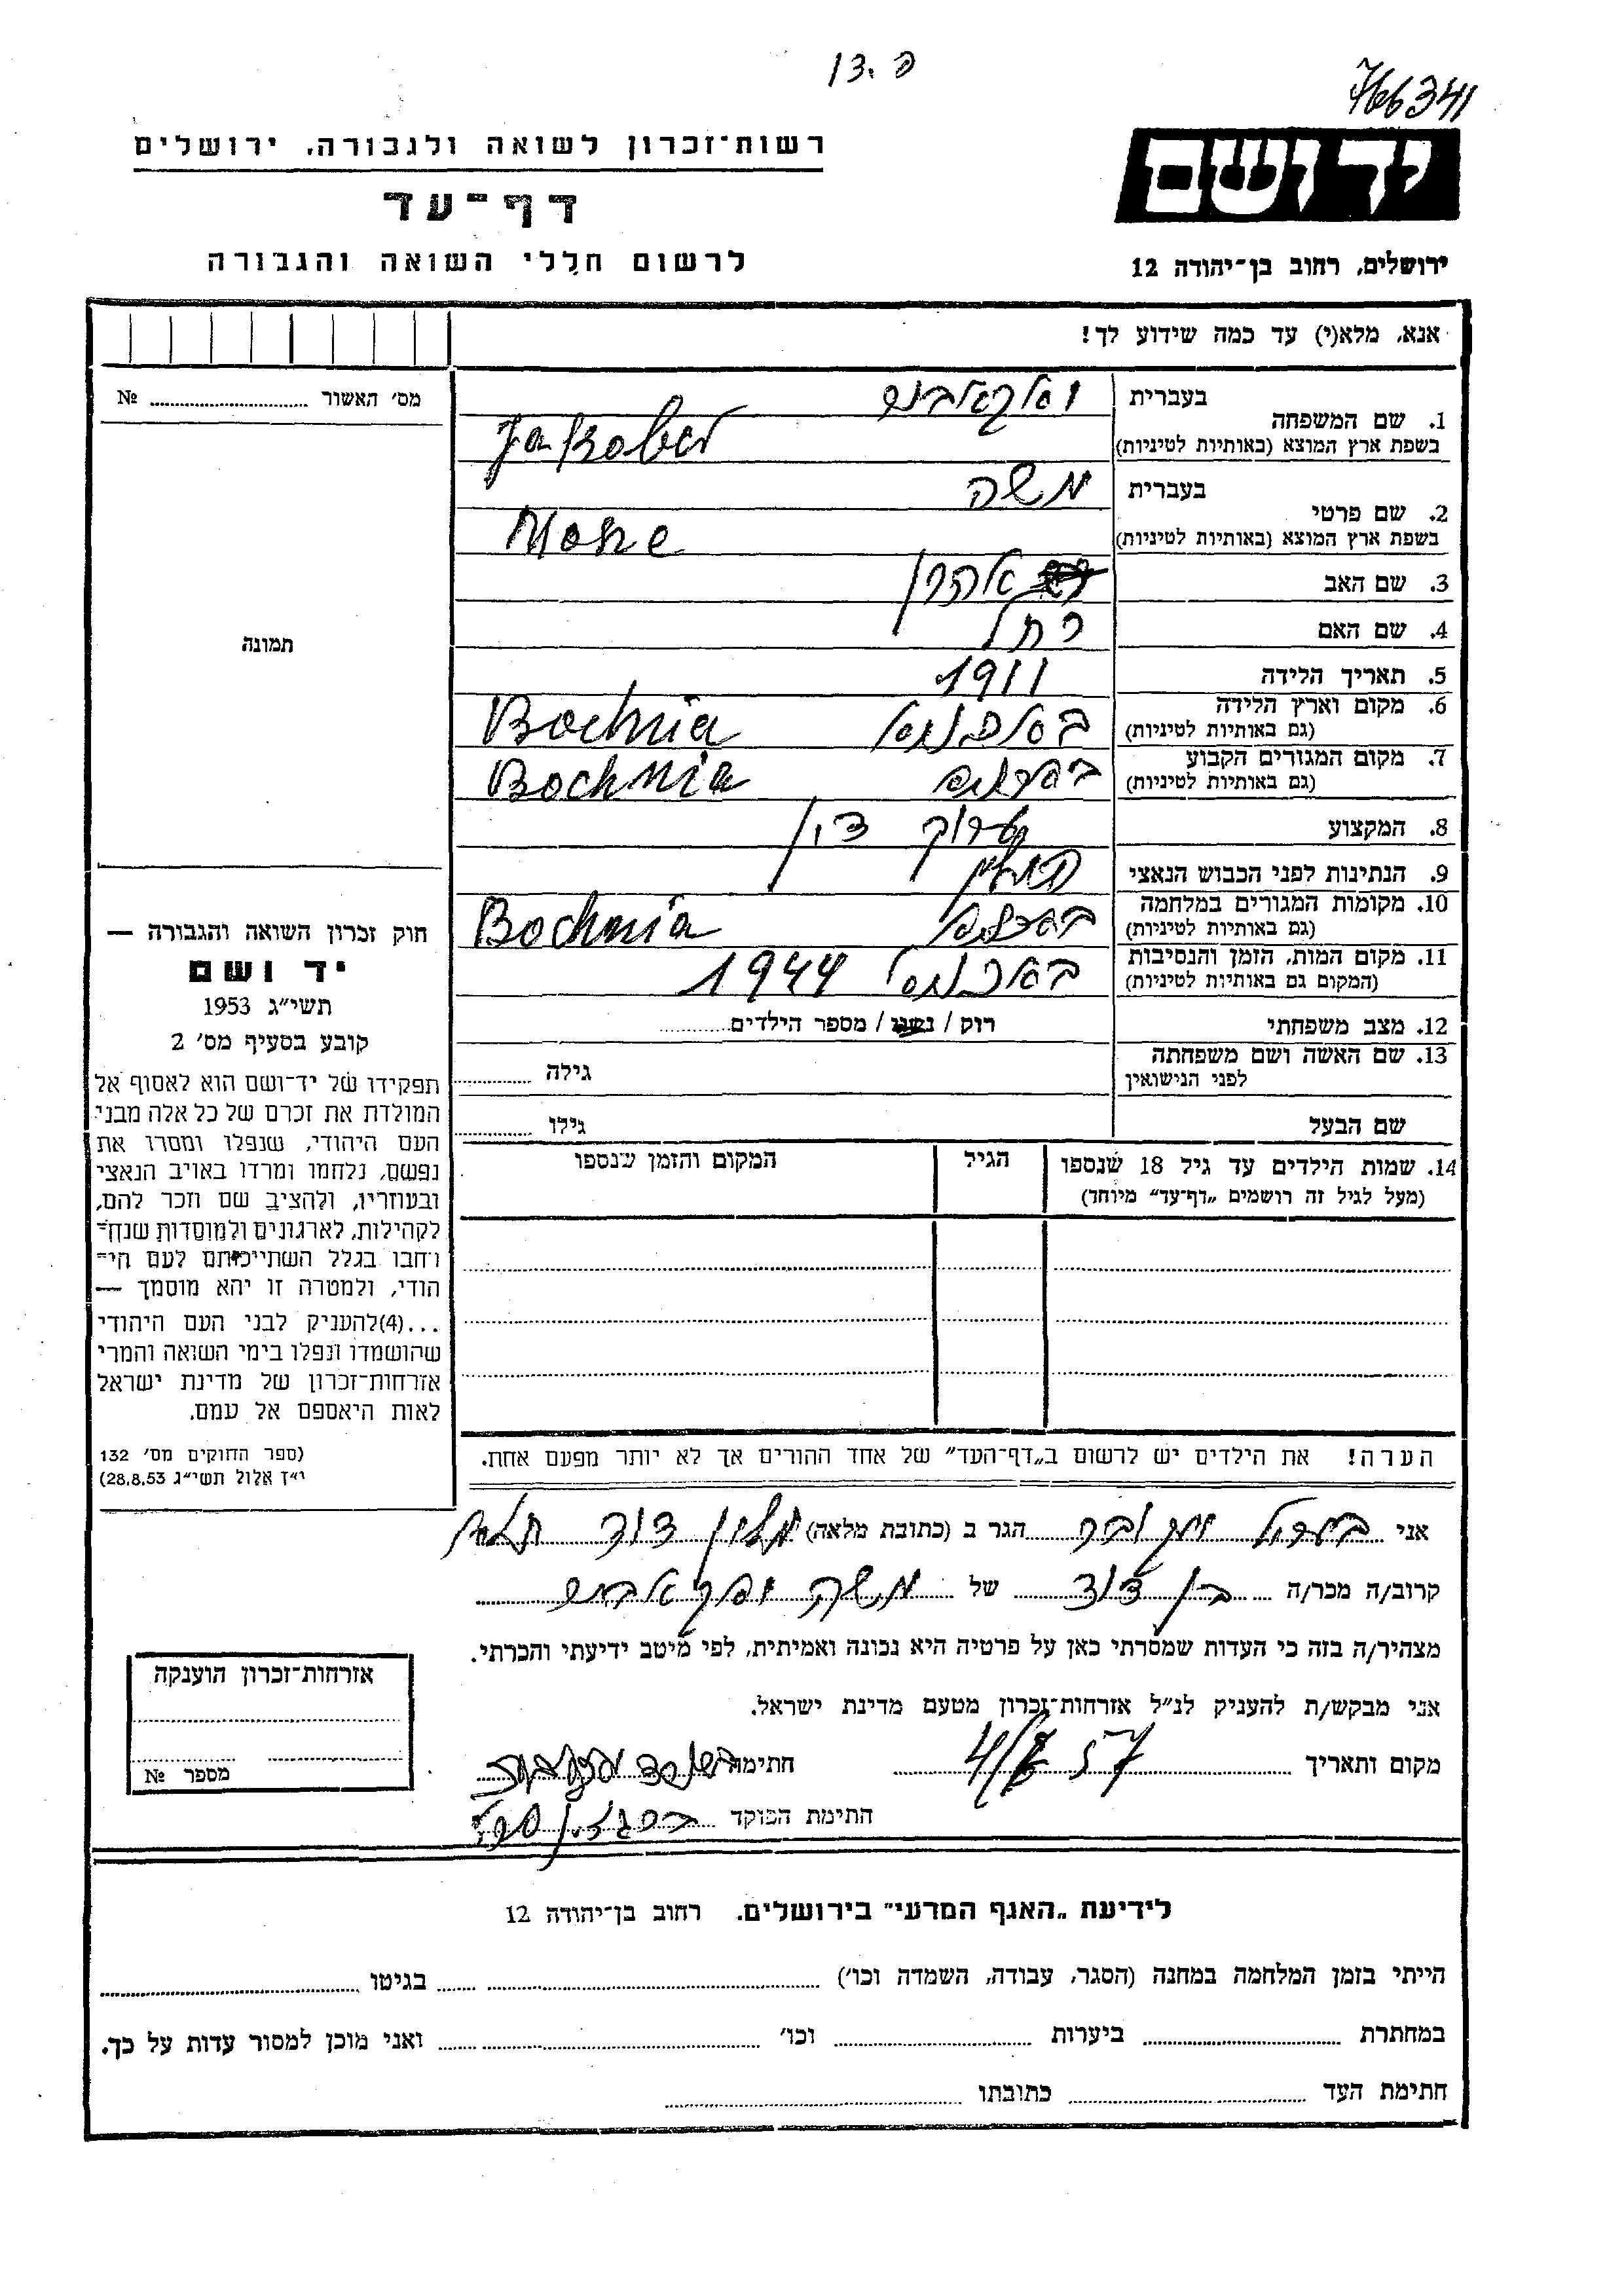 פ. דן
766341
רשות־זכרון לשואה ולגבורה, ירושלים
דף־עד
לרשום חללי השואה והגבורה
יד ושם
ירושלים, רחוב בן־יהודה 12
אנא, מלא(י) עד כמה שידוע לך!
1. שם המשפחה
בעברית
בשפת ארץ המוצא (באותיות לטיניות) Jakober
2. שם פרטי
בעברית משה
בשפת ארץ המוצא (באותיות לטיניות)
3. שם האב אהרן
4. שם האם רחל
5. תאריך הלידה 1911
6. מקום וארץ הלידה
(גם באותיות לטיניות) Bochnia
7. מקום המגורים הקבוע
(גם באותיות לטיניות) Bochnia
8. המקצוע
9. הנתינות לפני הכבוש הנאצי פולין
10. מקומות המגורים במלחמה
(גם באותיות לטיניות) Bochnia
11. מקום המות, הזמן והנסיבות
(המקום גם באותיות לטיניות) 1944
12. מצב משפחתי רוק / נשוי / מספר הילדים
13. שם האשה ושם משפחתה
לפני הנישואין גילה
שם הבעל גילו
14. שמות הילדים עד גיל 18 שנספו הגיל המקום והזמן שנספו
(מעל לגיל זה רושמים „דף־עד” מיוחד)
הערה! את הילדים יש לרשום ב„דף־העד” של אחד ההורים אך לא יותר מפעם אחת.
מס׳ האשור № 
תמונה
חוק זכרון השואה והגבורה —
יד ושם
תשי״ג 1953
קובע בסעיף מס׳ 2
תפקידו של יד־ושם הוא לאסוף אל
המולדת את זכרם של כל אלה מבני
העם היהודי, שנפלו ומסרו את
נפשם, נלחמו ומרדו באויב הנאצי
ובעוזריו, ולהציב שם וזכר להם,
לקהילות, לארגונים ולמוסדות שנח־
רחבו בגלל השתייכותם לעם הי־
הודי, ולמטרה זו יהא מוסמך —
...(4)להעניק לבני העם היהודי
שהושמדו ונפלו בימי השואה והמרי
אזרחות־זכרון של מדינת ישראל
לאות היאספם אל עמם.
(ספר החוקים מס׳ 132
י״ז אלול תשי״ג 28.8.53)
אני הגר ב (כתובת מלאה)
קרוב/ה מכר/ה בן דוד של משה
מצהיר/ה בזה כי העדות שמסרתי כאן על פרטיה היא נכונה ואמיתית, לפי מיטב ידיעתי והכרתי.
אני מבקש/ת להעניק לנ״ל אזרחות־זכרון מטעם מדינת ישראל.
מקום ותאריך חתימה
חתימת הפוקד
אזרחות־זכרון הוענקה
מספר №
לידיעת „האגף המדעי” בירושלים. רחוב בן־יהודה 12
הייתי בזמן המלחמה במחנה (הסגר, עבודה, השמדה וכו׳) בגיטו
במחתרת ביערות וכו׳ ואני מוכן למסור עדות על כך.
חתימת העד כתובתו